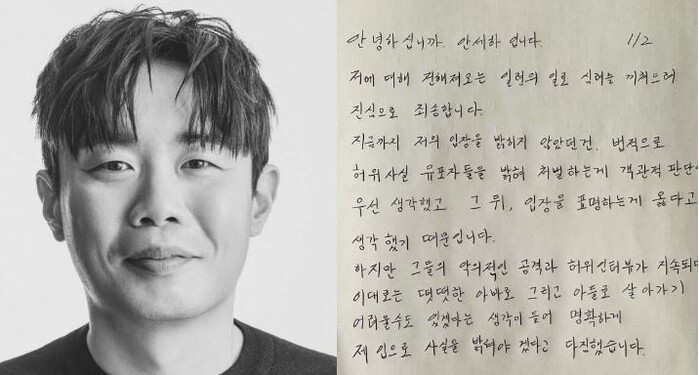 안녕하십니까. 안세하 입니다. 1/2
저에 대해 전해져오는 일련의 일로 심려를 끼쳐드려
진심으로 죄송합니다.
지금까지 저의 입장을 밝히지 않았던건, 법적으로
허위사실 유포자들을 밝혀 처벌하는게 객관적 판단
우선 생각했고. 그 뒤, 입장을 표명하는게 옳다고
생각했기 때문입니다.
하지만 그들의 악의적인 공격과 허위인터뷰가 지속되
이대로는 떳떳한 아빠로 그리고 아들로 살아가기
어려울수도 있겠다는 생각이 들어 명확하게
제 입으로 사실을 밝혀야 겠다고 다짐했습니다.